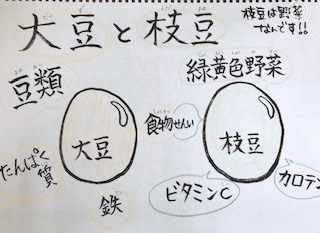 大豆と枝豆
枝豆は野菜
なんです!!
豆類
緑黄色野菜
大豆
食物せんい
枝豆
たんぱく
質
鉄
ビタミンC
カロテン